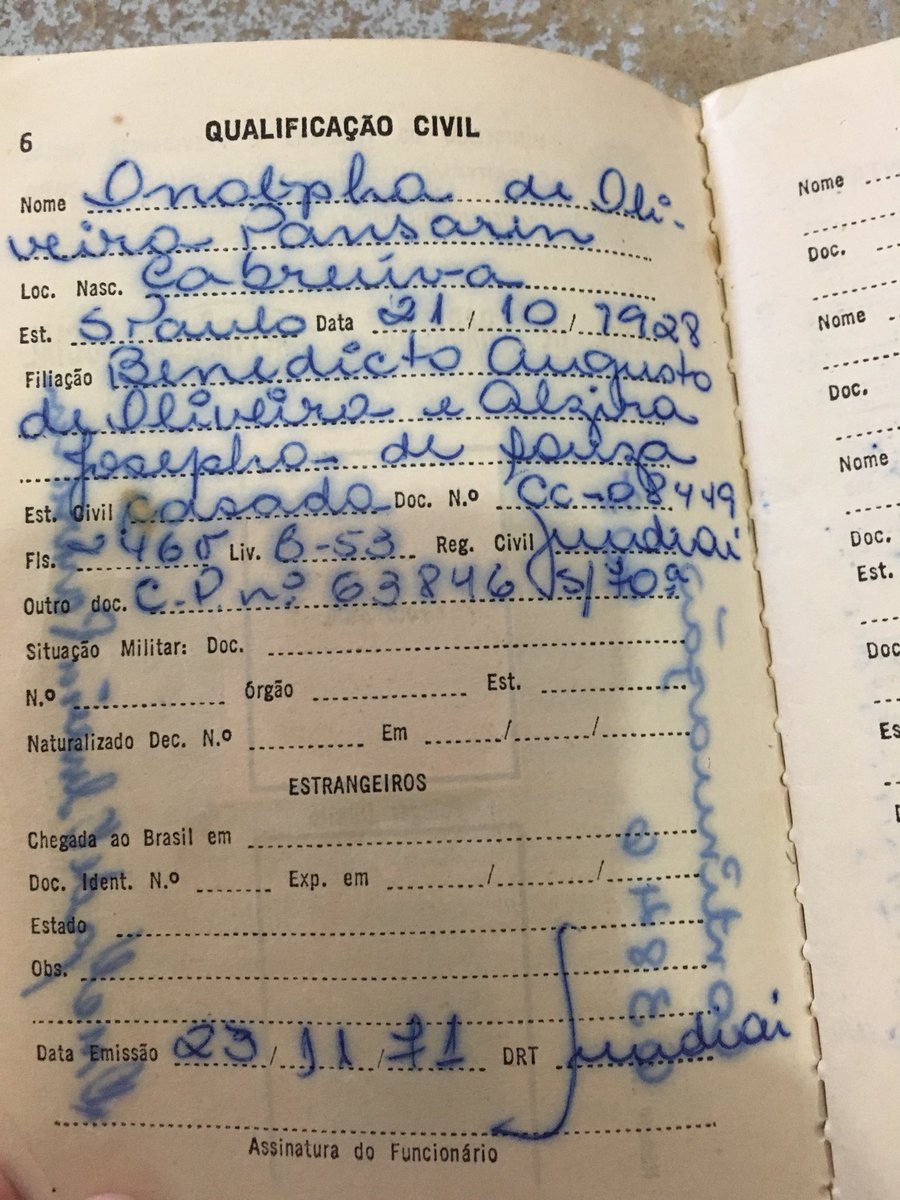 6
QUALIFICAÇÃO CIVIL
Nome de Oli-
veira Pansarin
Loc. Nasc. Cabreúva
Est. S Paulo Data 21/10/1928
Filiação Benedicto Augusto
de Oliveira e Alzira
Josepha de Souza
Est. Civil Casada Doc. N.º CC-08449
Fls. 460 Liv. B-53 Reg. Civil Jundiai
Outro doc. C.P. nº 63846 S/70ª
Situação Militar: Doc.
N.º órgão Est.
Naturalizado Dec. N.º Em / /
ESTRANGEIROS
Chegada ao Brasil em
Doc. Ident. N.º Exp. em / /
Estado
Obs.
Data Emissão 23/11/71 DRT Jundiai
Assinatura do Funcionário
Nome
Doc.
Nome
Doc.
Nome
Doc.
Est.
Doc
Es